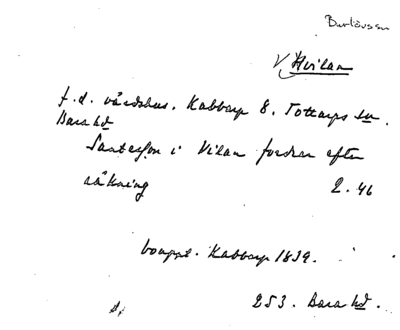 V Hvilan
f.d. värdshus. Kabbarp 8. Tottarps sn.
Bara hd
i Vilan fordran efter
räkning 2.46
bouppt. Kabbarp 1839.
253. Bara hd.